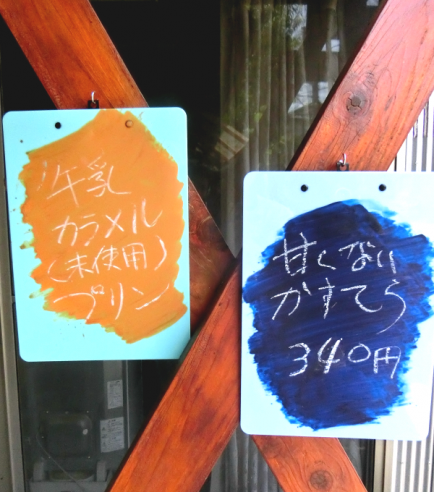 牛乳
カラメル
(未使用)
プリン
甘くない
かすてら
340円